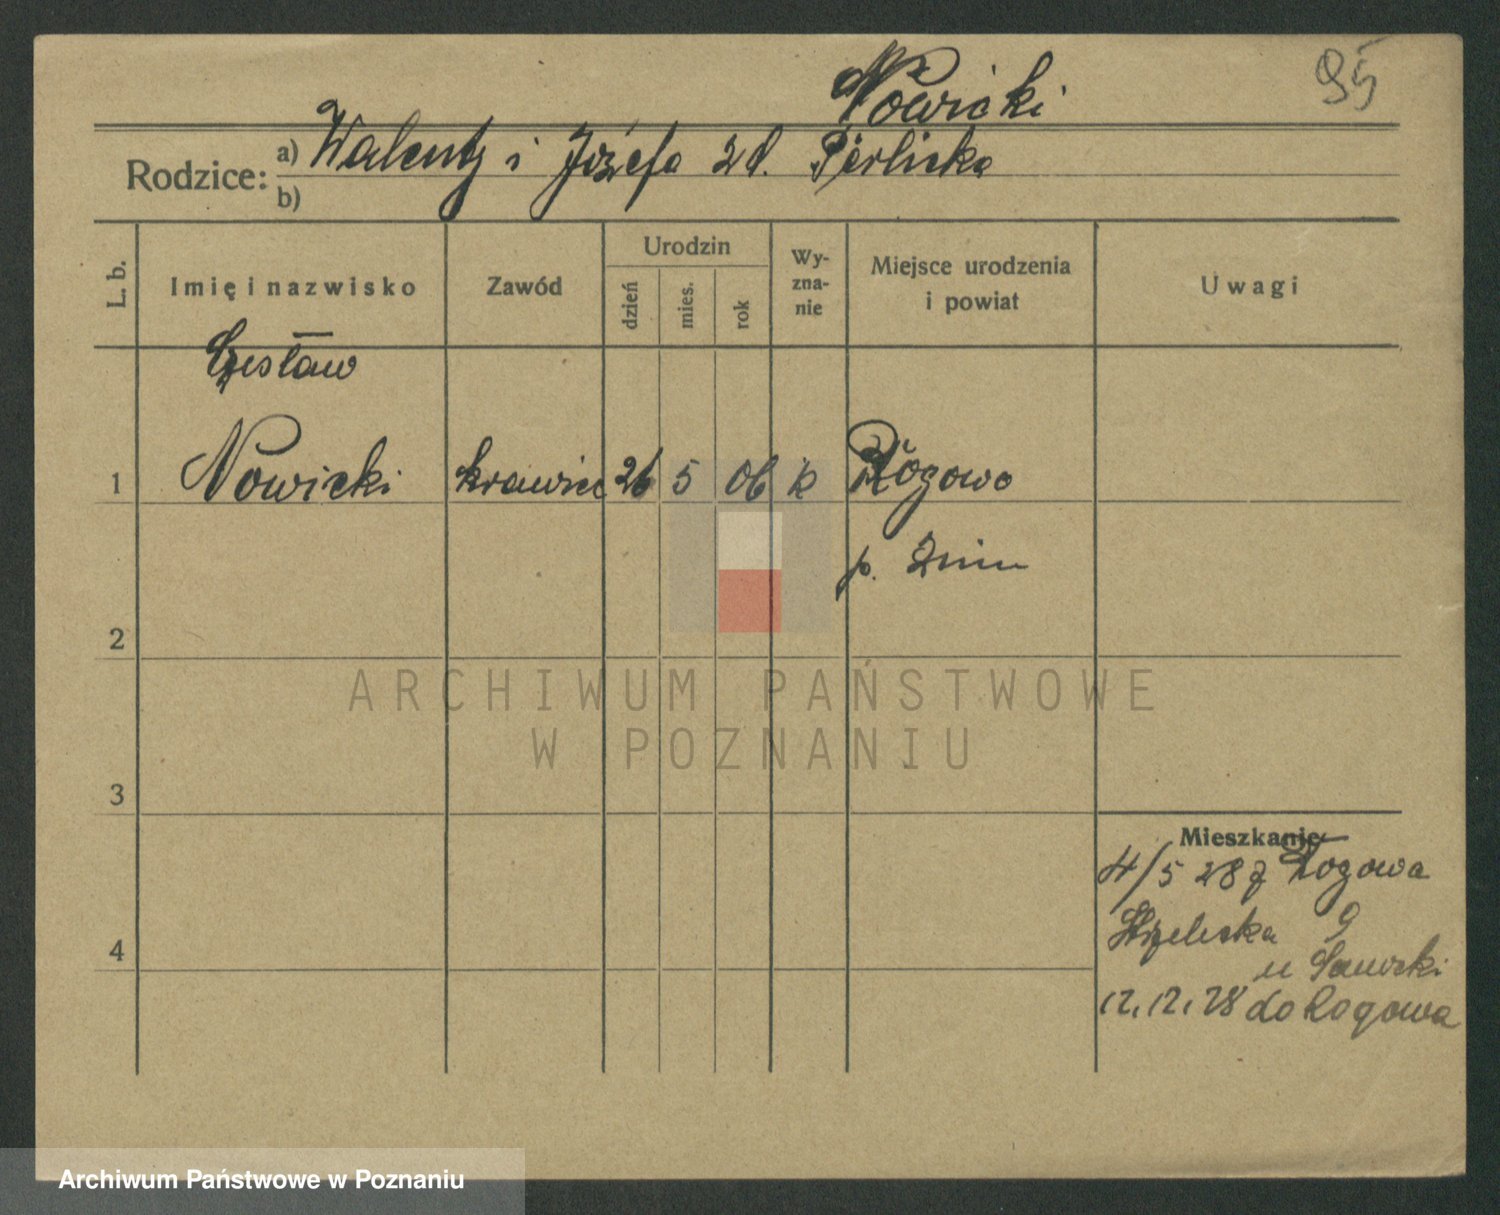 Nowicki
95
Rodzice: a) Walenty i Józefa zd. Perlicka
b)
L. b.
Imię i nazwisko
Zawód
Urodzin
dzień
mies.
rok
Wy-
zna-
nie
Miejsce urodzenia
i powiat
Uwagi
Czesław
1 Nowicki krawiec 26 5 06 k Rogowo
p. Żnin
2
ARCHIWUM PAŃSTWOWE
W POZNANIU
3
Mieszkanie
4/5 28 z Rogowa
Strzelecka 9
4
u Sawicki
12.12.28 do Rogowa
Archiwum Państwowe w Poznaniu